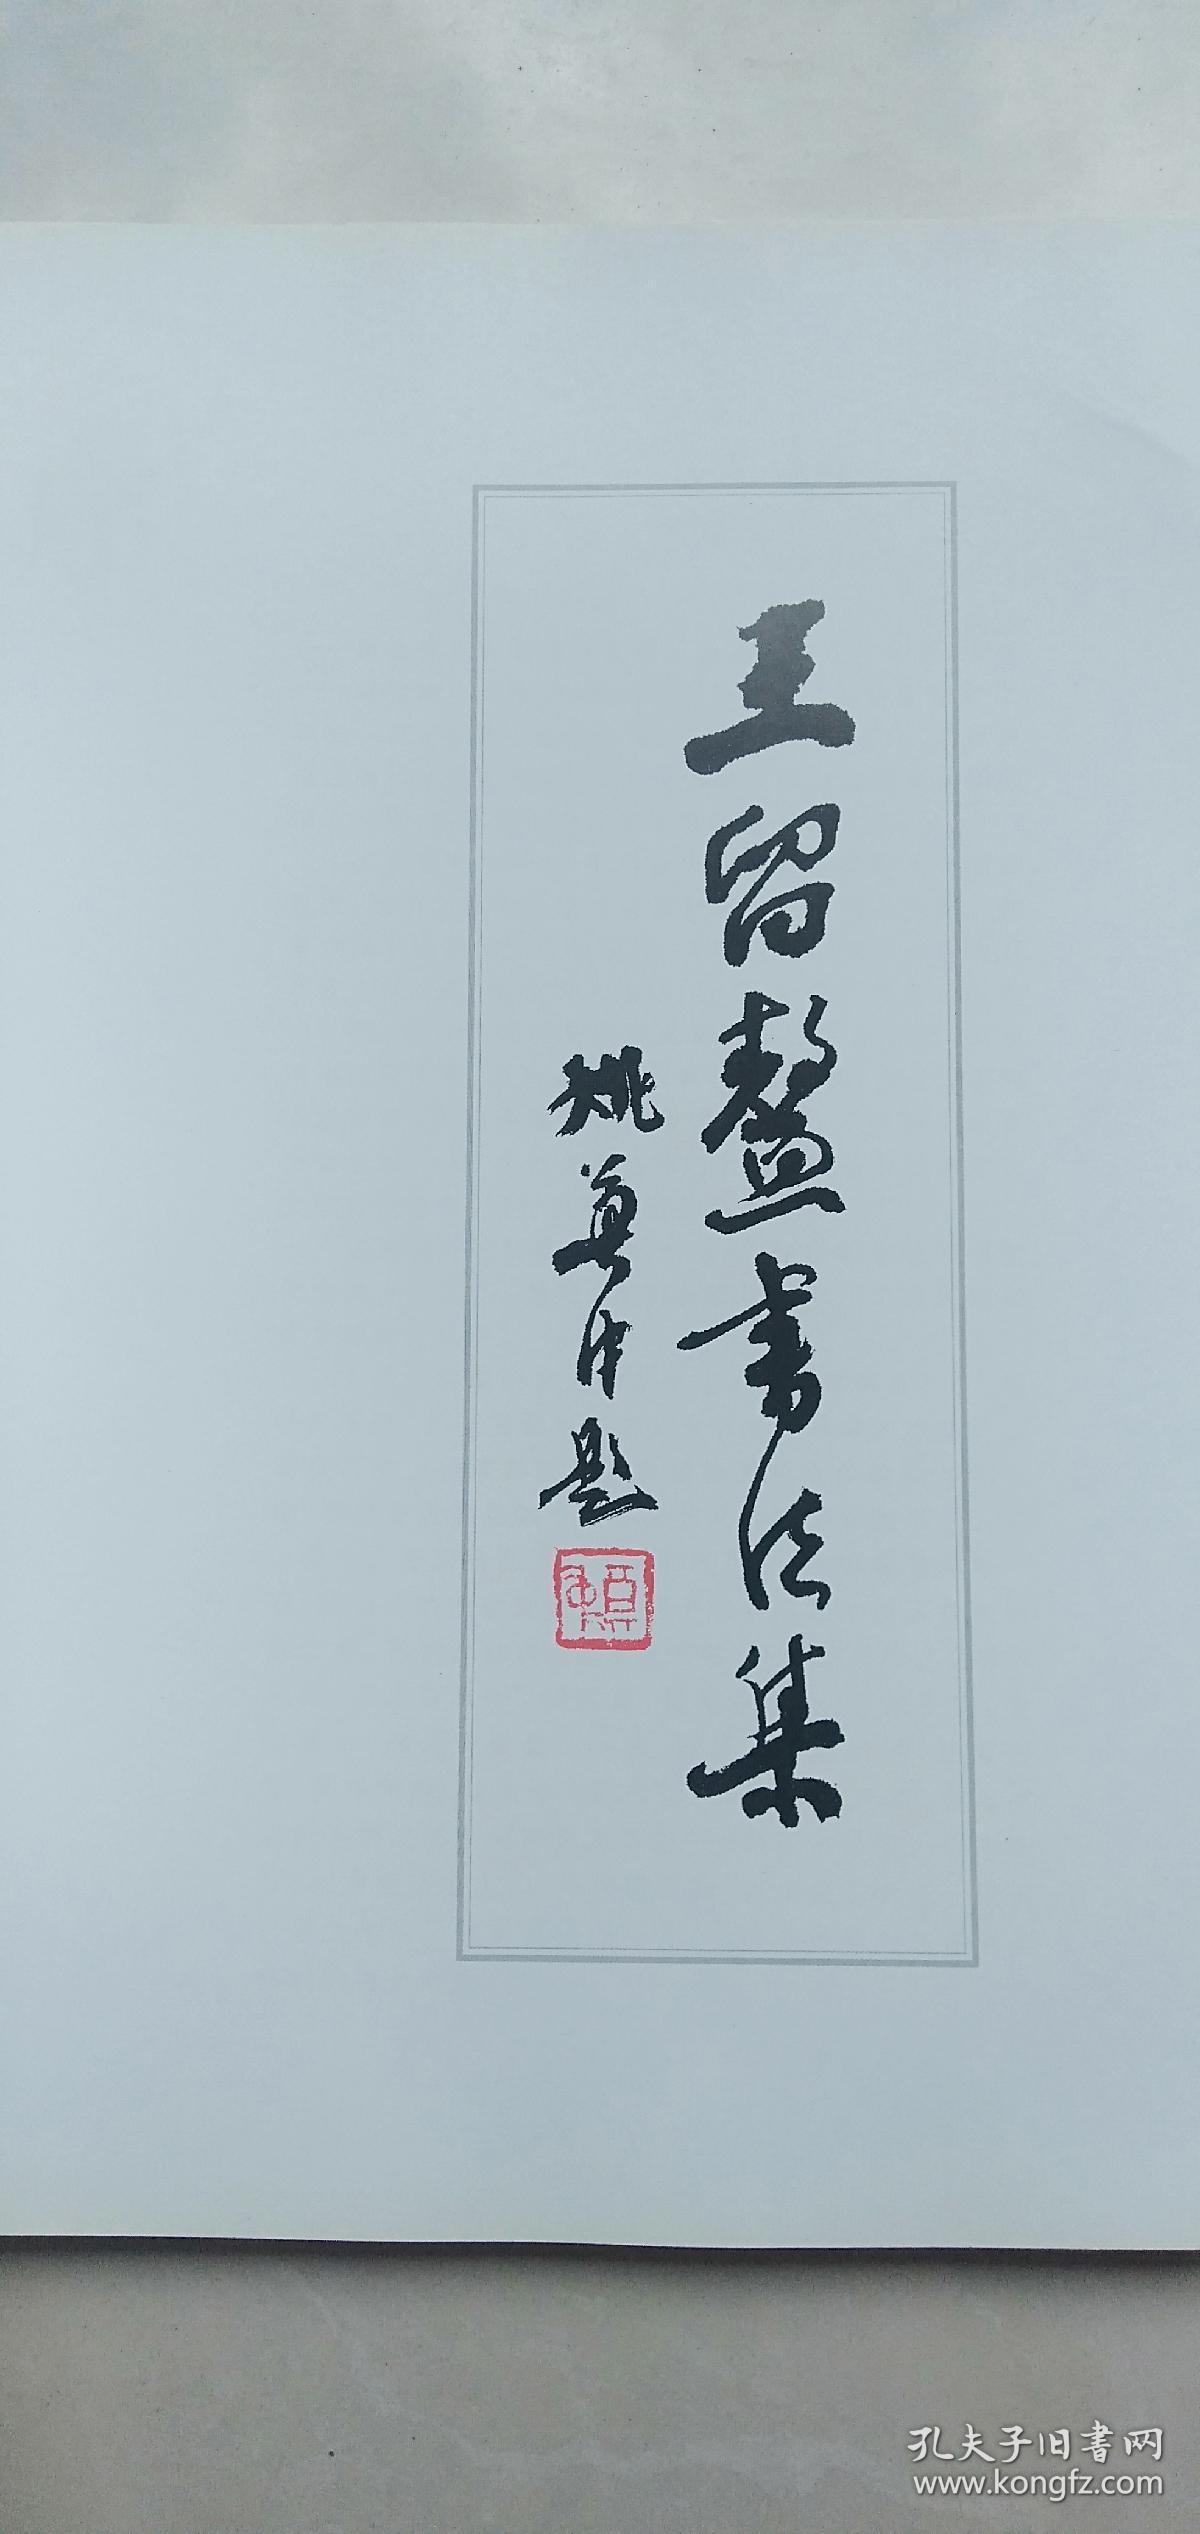 王留鳌書法集
姚奠中题
孔夫子旧書网
www.kongfz.com